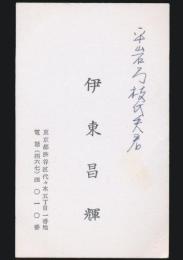 平岩弓枝氏夫君
伊東昌輝
東京都渋谷区代々木五丁目一番地
電話(四六七)四〇一〇番